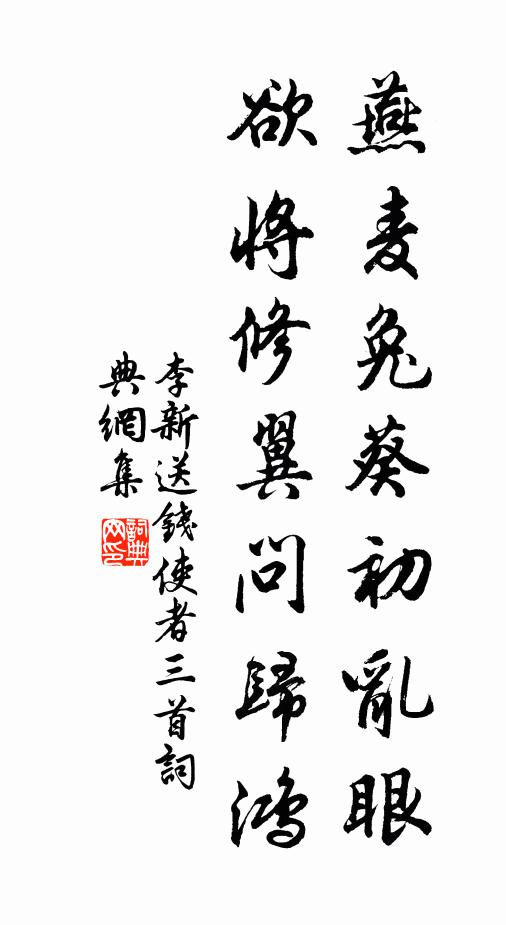 燕麦兔葵初亂眼
欲將修翼問歸鴻
李新送錢使者三首詞
典網集
詞典網印